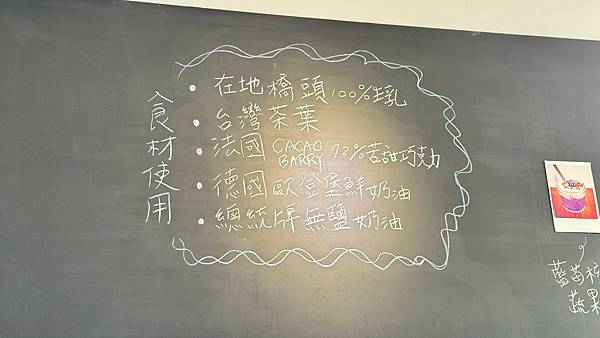 食材使用
• 在地橋頭100%生乳
• 台灣茶葉
• 法國 CACAO BARRY 72%苦甜巧克力
• 德國歐登堡鮮奶油
• 總統牌無鹽奶油
藍莓
蔬果